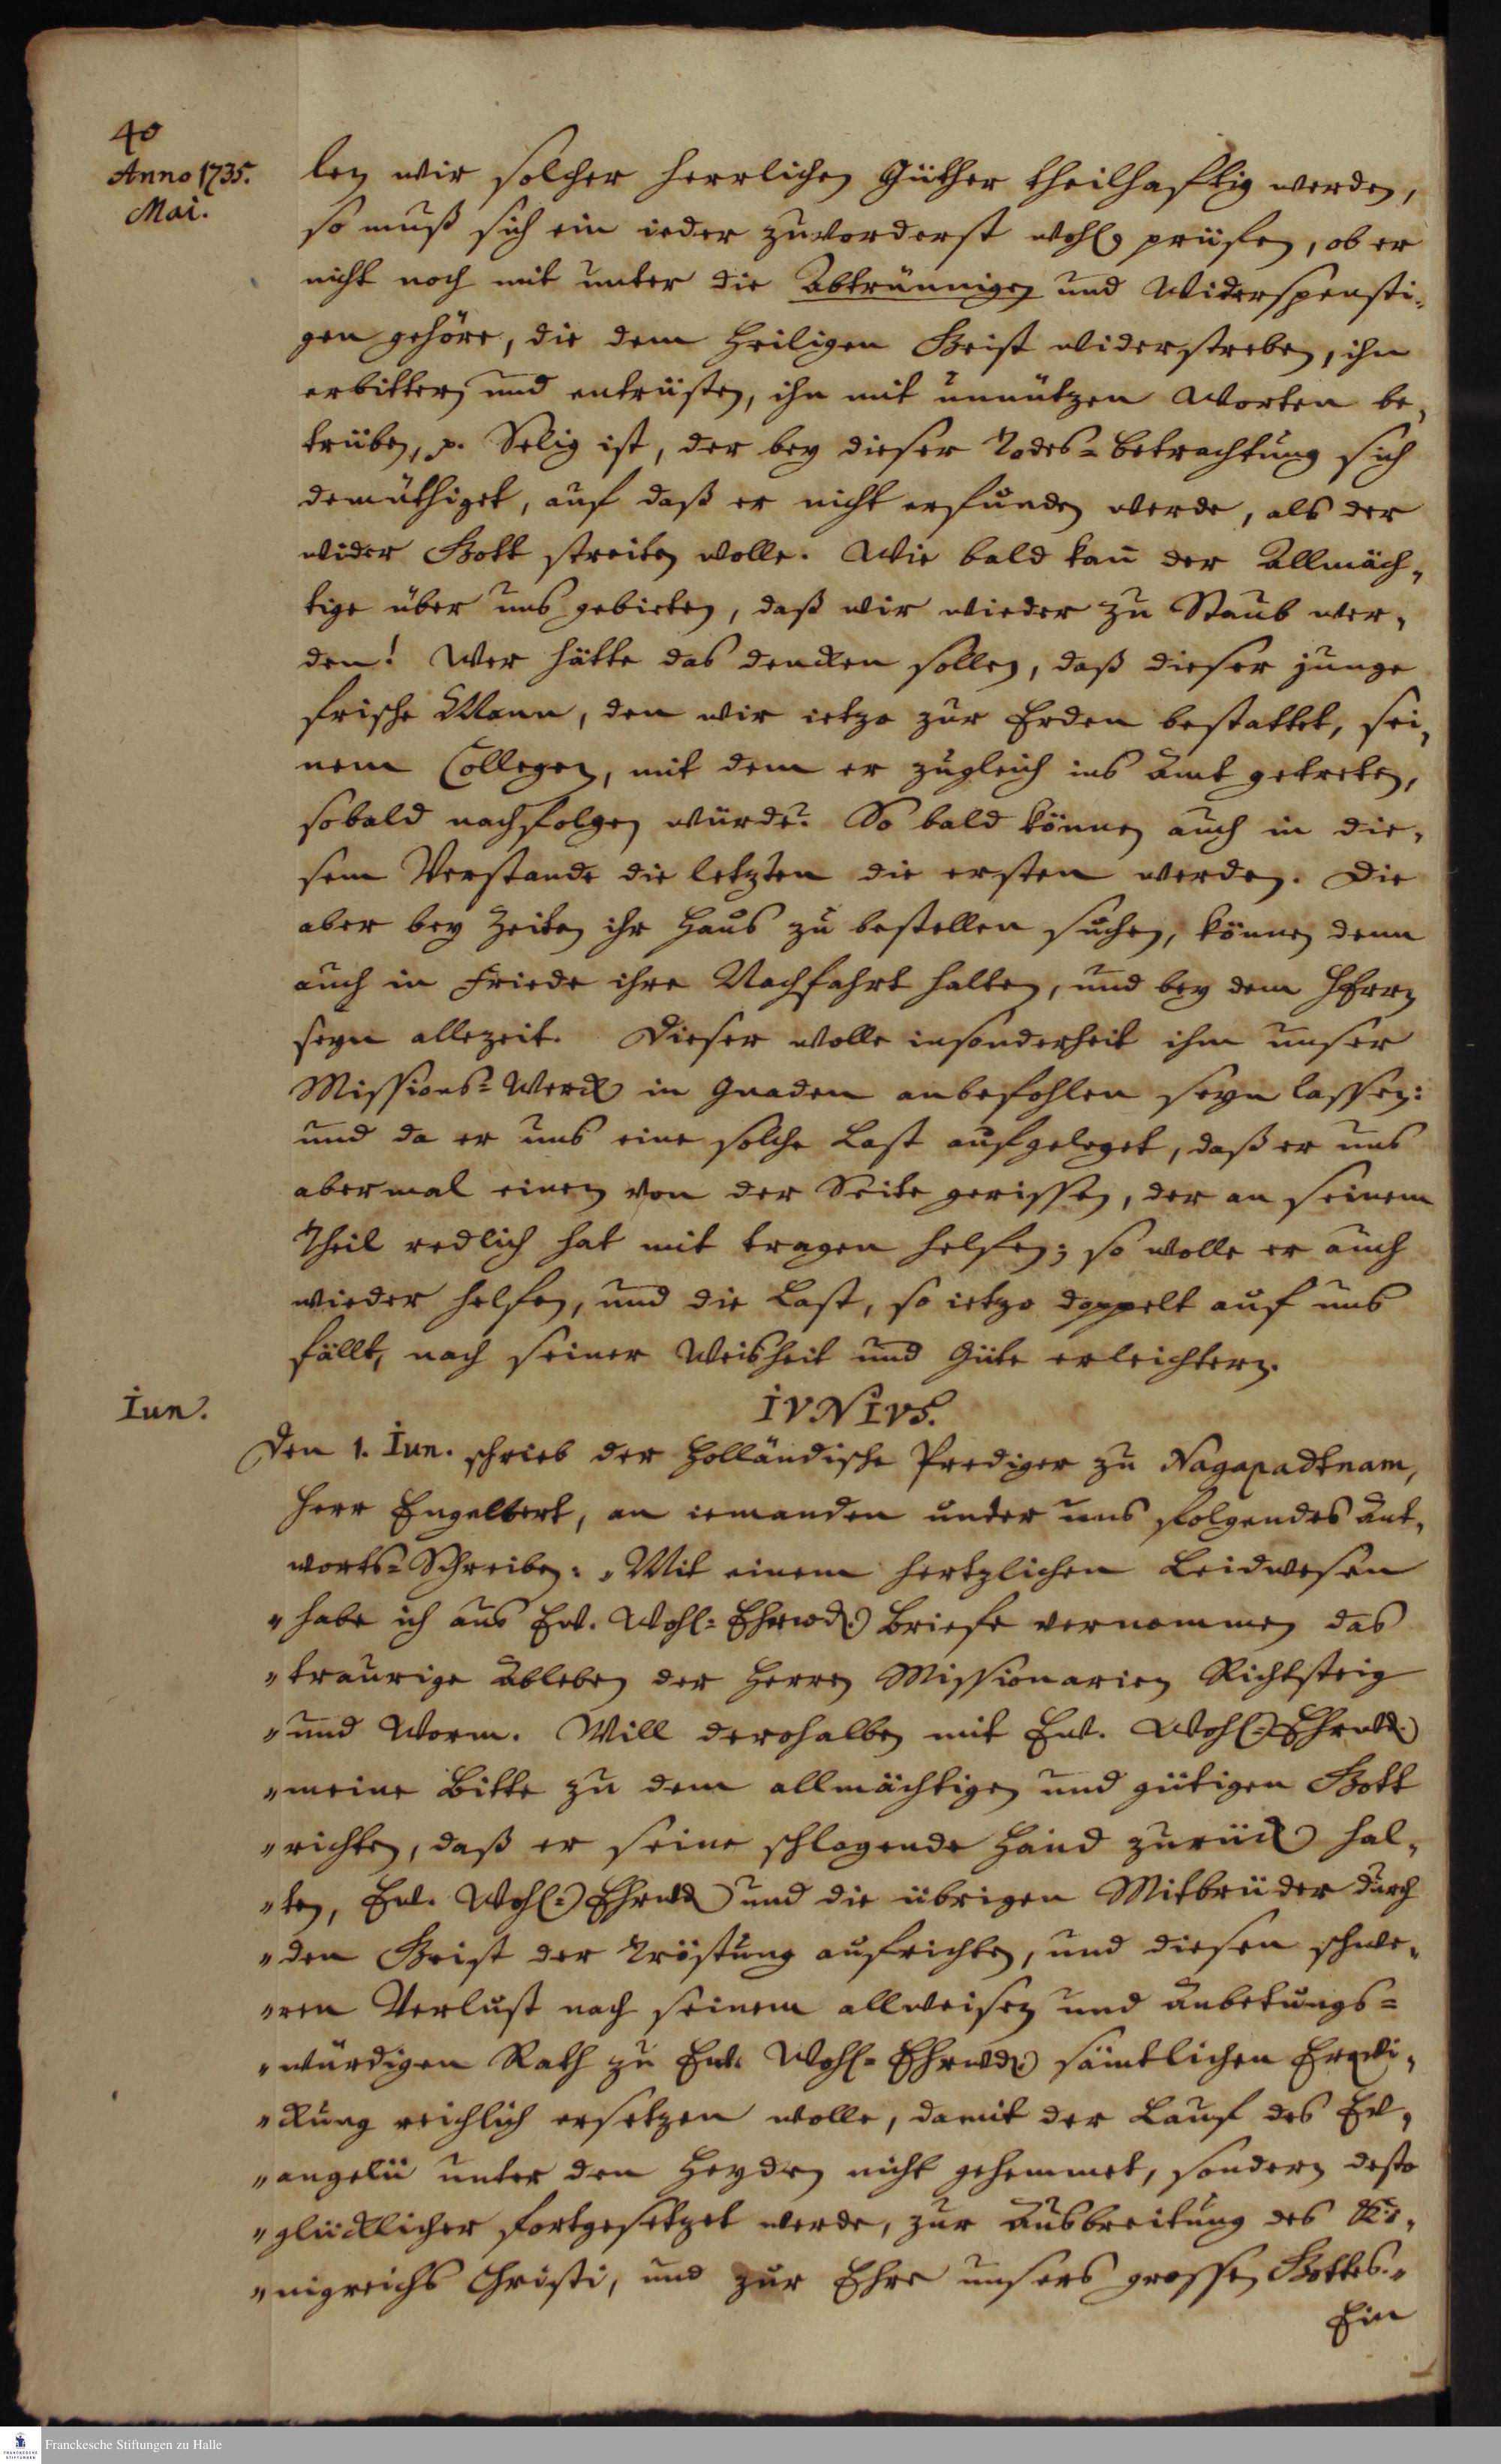 40
Anno 1735.
Mai.
len wir solcher herrlichen Güther theilhafftig werden,
so muß sich ein ieder zuvorderst wohl prüfen, ob er
nicht noch mit unter die Abtrünnigen und Widerspensti-
gen gehöre, die dem Heiligen Geist widerstreben, ihn
erbittern und entrüsten, ihn mit unnützen Worten be-
trüben, p. Selig ist, der bey dieser Todes-Betrachtung sich
demüthiget, auf daß er nicht erfunden werde, als der
wider Gott streiten wolle. Wie bald kan̄ der Allmäch-
tige über uns gebieten, daß wir wieder zu Staub wer-
den! Wer hätte das dencken sollen, daß dieser junge
frische Mann, den wir ietzo zur Erden bestattet, sei-
nem Collegen, mit dem er zugleich ins Amt getreten,
sobald nachfolgen würde? So bald können auch in die-
sem Verstande die letzten die ersten werden. Die
aber bey Zeiten ihr Haus zu bestellen suchen, können denn
auch in Friede ihre Nachfahrt halten, und bey dem HErrn
seyn allezeit. Dieser wolle insonderheit ihm unser
Missions-Werck in Gnaden anbefohlen seyn lassen:
und da er uns eine solche Last aufgeleget, daß er uns
abermal einen von der Seite gerissen, der an seinem
Theil redlich hat mit tragen helfen; so wolle er auch
wieder helfen, und die Last, so ietzo doppelt auf uns
fällt, nach seiner Weisheit und Güte erleichtern.
Iun.
IVNIVS.
Den 1. Iun. schrieb der Holländische Prediger zu Nagapadtnam,
Herr Engelbert, an iemanden under uns folgendes Ant-
worts-Schreiben: „Mit einem hertzlichen Leidwesen
„habe ich aus Ew. Wohl-Ehrwd. Briefe vernommen das
„traurige Ableben der Herren Missionarien Richtsteig
„und Worm. Will derohalben mit Ew. Wohl-Ehrwd.
„meine Bitte zu dem allmächtigen und gütigen Gott
„richten, daß er seine schlagende Hand zurück hal-
„ten, Ew. Wohl-Ehrwd und die übrigen Mitbrüder durch
„den Geist der Tröstung aufrichten, und diesen schwe-
„ren Verlust nach seinem allweisen und Anbetungs-
„würdigen Rath zu Ew. Wohl-Ehrwd. sämtlichen Erqvi-
„ckung reichlich ersetzen wolle, damit der Lauf des Ev-
„angelii unter den Heyden nicht gehemmet, sondern desto
„glücklicher fortgesetzet werde, zur Ausbreitung des Kö-
„nigreichs Christi, und zur Ehre unsers grossen Gottes.„
Ein
Franckesche Stiftungen zu Halle